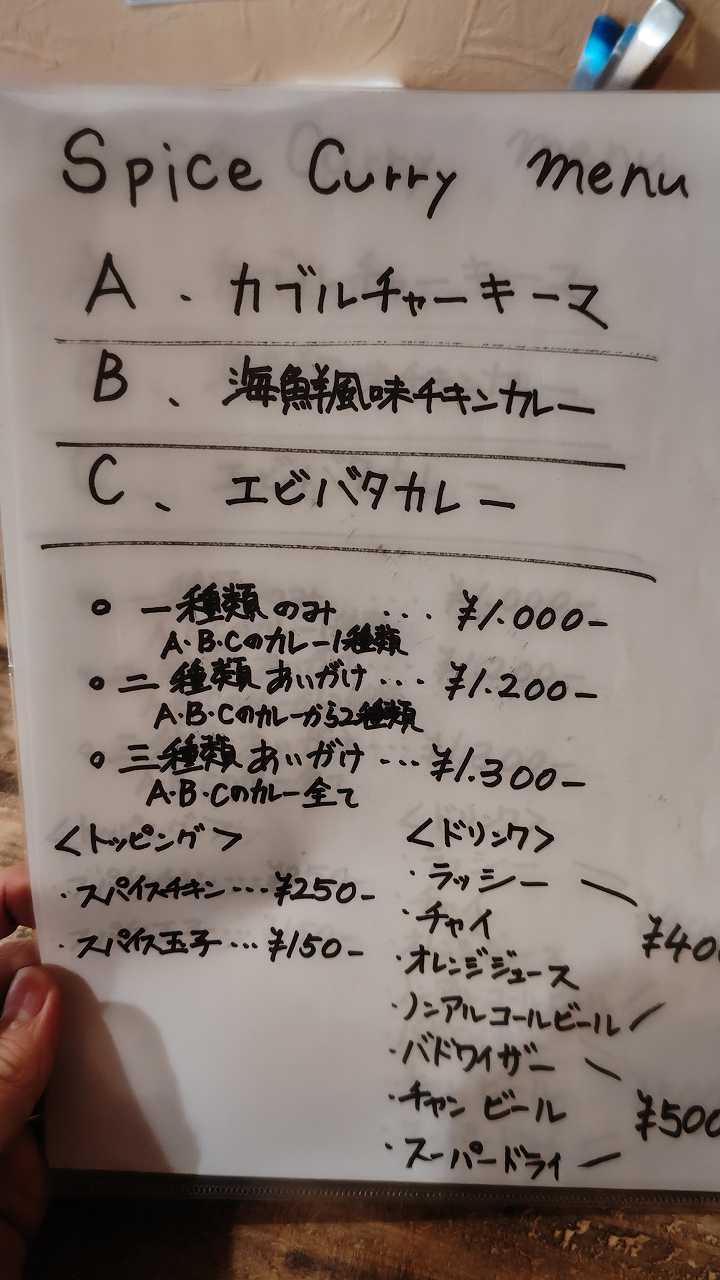 Spice Curry menu
A. カブルチャーキーマ
B、海鮮風味チキンカレー
C、エビバタカレー
○ 一種類のみ ... ¥1.000-
A・B・Cのカレー1種類
○ 二種類あいがけ ... ¥1.200-
A・B・Cのカレーから2種類
○ 三種類あいがけ ... ¥1.300-
A・B・Cのカレー全て
<トッピング>
・スパイスチキン...¥250-
・スパイス玉子...¥150-
<ドリンク>
・ラッシー
・チャイ
¥400
・オレンジジュース
・ノンアルコールビール
・バドワイザー
・チャンビール
¥500
・スーパードライ